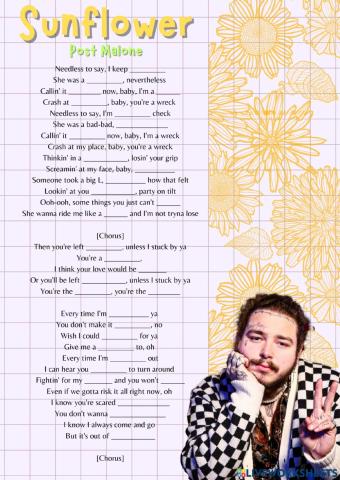 Sunflower
Post Malone
Needless to say, I keep __________
She was a __________, nevertheless
Callin' it _________ now, baby, I'm a ______
Crash at __________, baby, you're a wreck
Needless to say, I'm _________ check
She was a bad-bad, ___________
Callin' it __________ now, baby, I'm a wreck
Crash at my place, baby, you're a wreck
Thinkin' in a ____________, losin' your grip
Screamin' at my face, baby, ___________
Someone took a big L, __________ how that felt
Lookin' at you ____________, party on tilt
Ooh-ooh, some things you just can't ______
She wanna ride me like a ______ and I'm not tryna lose
[Chorus]
Then you're left __________, unless I stuck by ya
You're a __________,
I think your love would be ________
Or you'll be left ____________, unless I stuck by ya
You're the _________, you're the _________
Every time I'm ___________ ya
You don't make it __________, no
Wish I could __________ for ya
Give me a ________ to, oh
Every time I'm __________ out
I can hear you __________ to turn around
Fightin' for my ________ and you won't ______
Even if we gotta risk it all right now, oh
I know you're scared ______________
You don't wanna _______________
I know I always come and go
But it's out of ____________
[Chorus]
LIVEWORKSHEETS